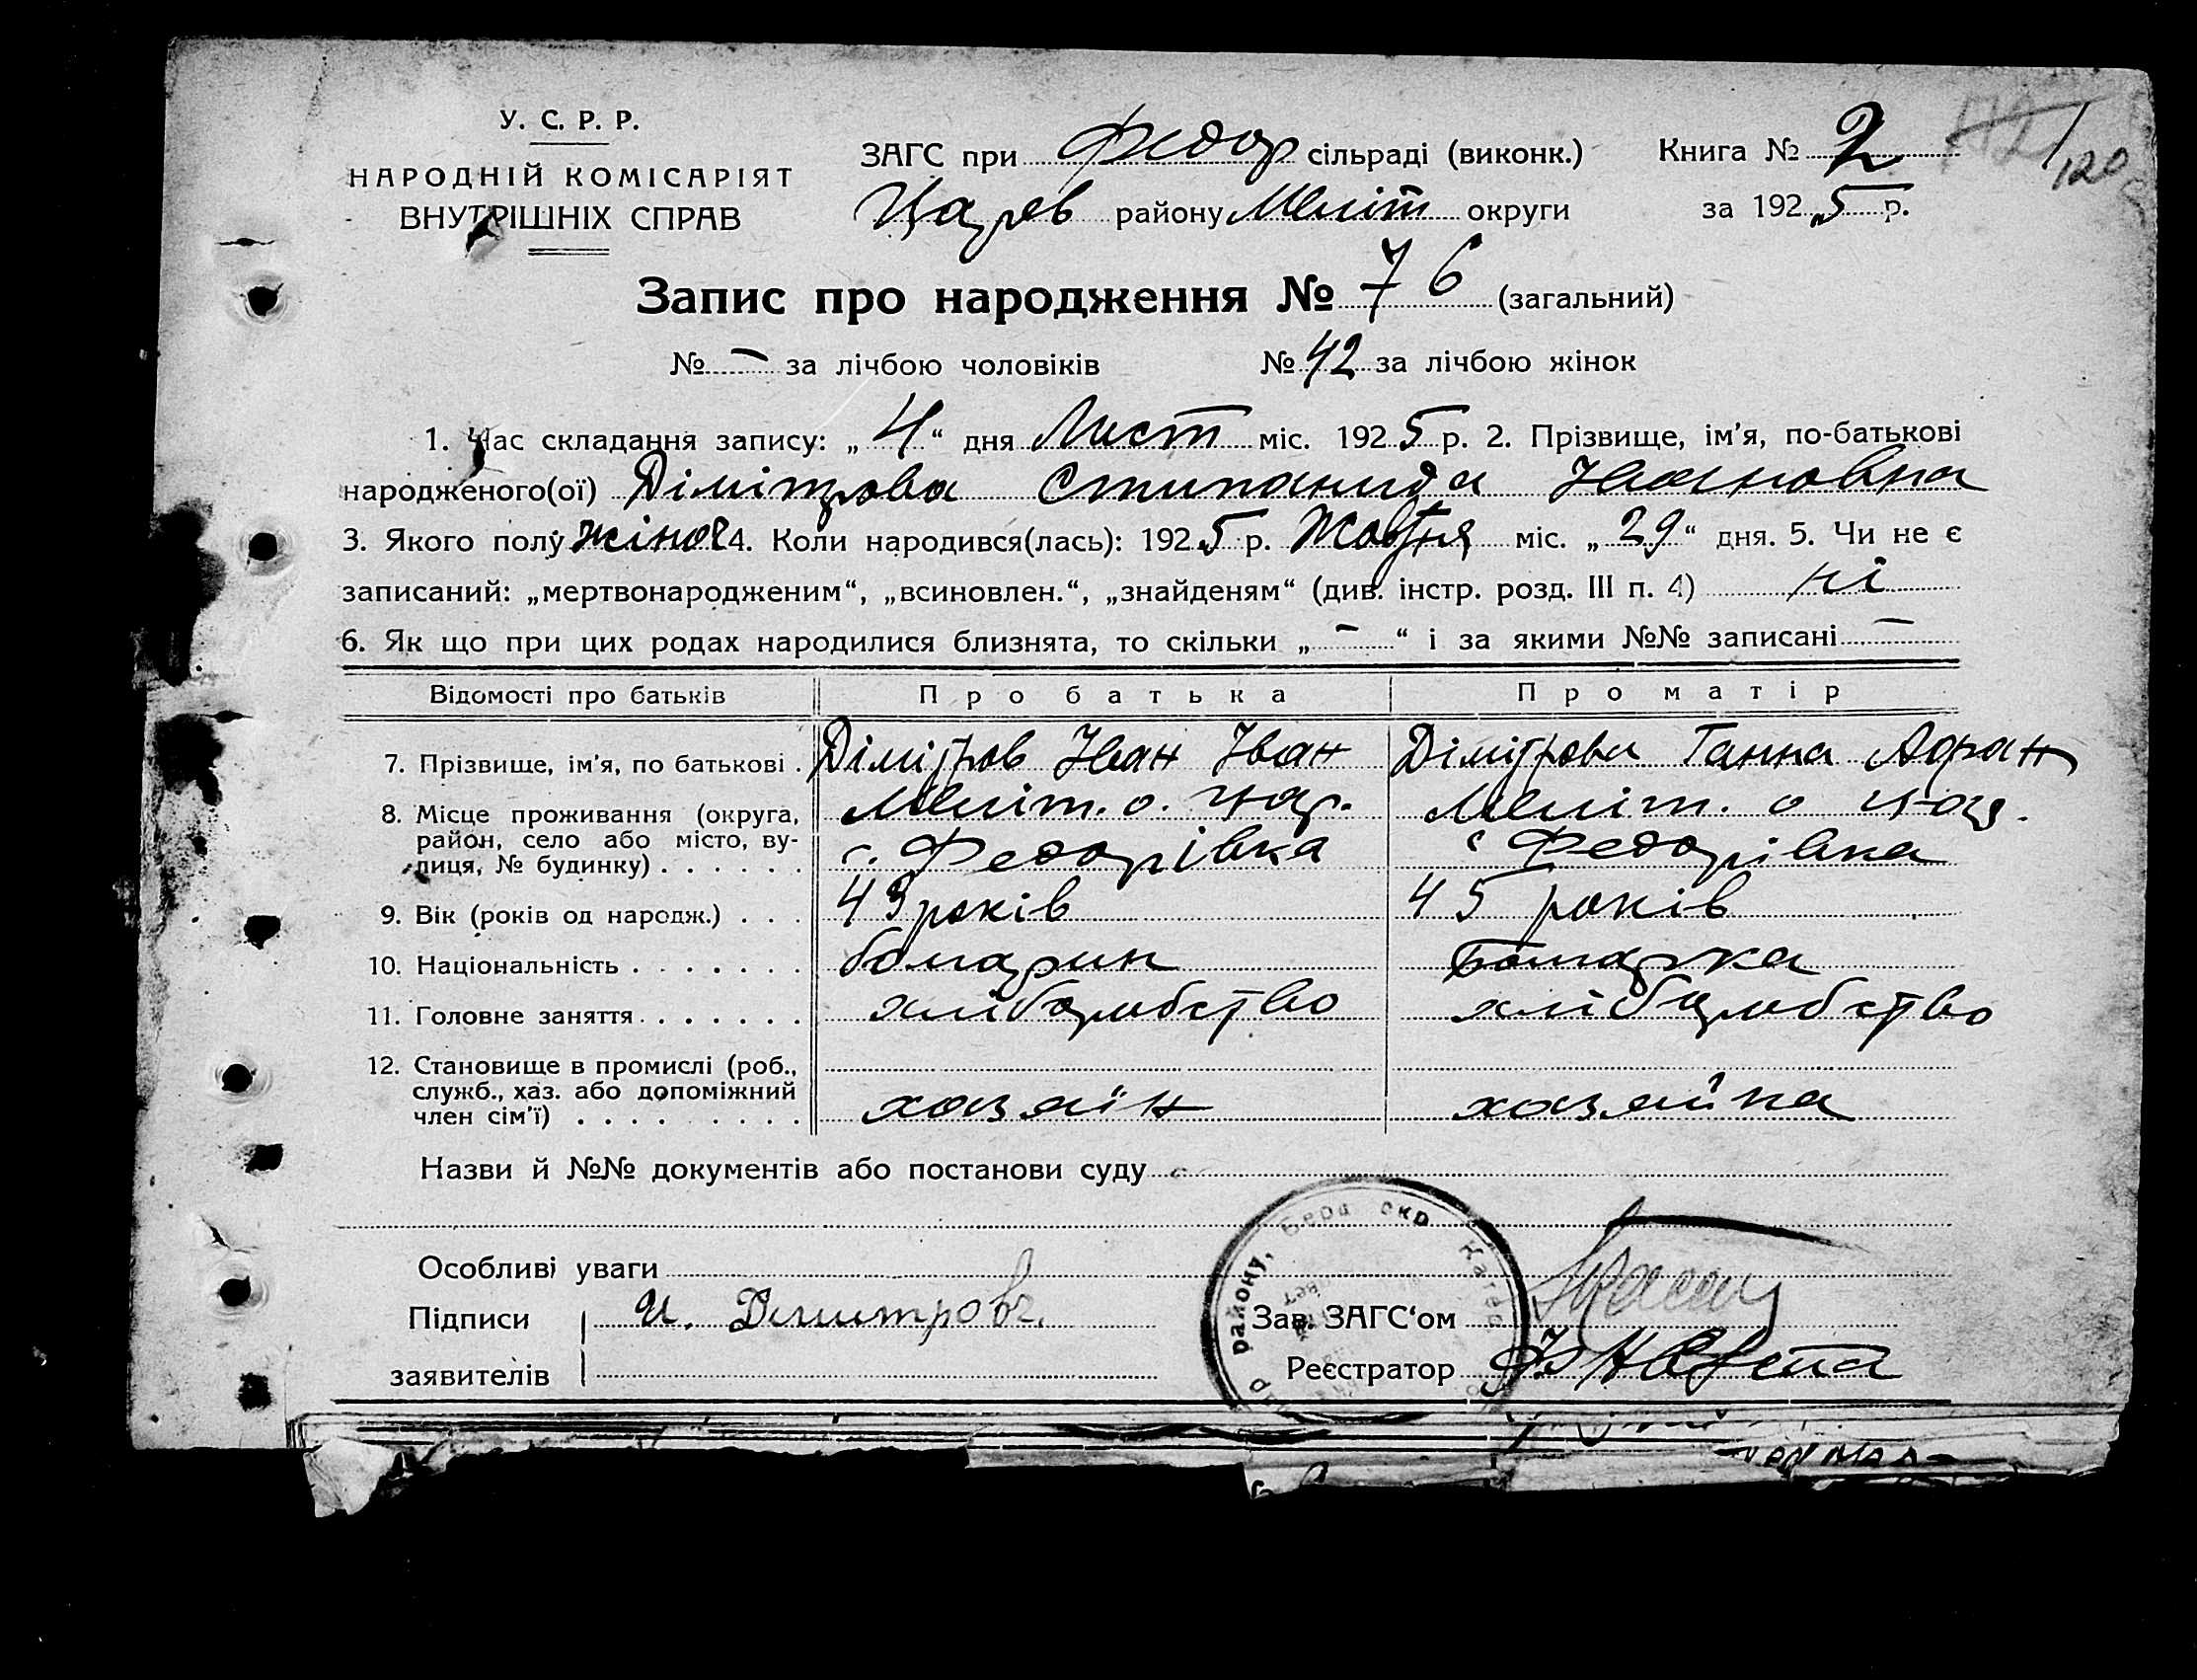 У. С. Р. Р.
НАРОДНІЙ КОМІСАРІЯТ
ВНУТРІШНІХ СПРАВ
ЗАГС при Федор сільраді (виконк.)
Царев району Меліт округи
Книга № 2
за 1925 р.
120
Запис про народження № 76 (загальний)
№ — за лічбою чоловіків № 42 за лічбою жінок
1. Час складання запису: „4“ дня Лист міс. 1925 р. 2. Прізвище, ім'я, по-батькові
народженого(ої) Дімітрова Стипанида Ивановна
3. Якого полу жіноч 4. Коли народився(лась): 1925 р. Жовтня міс. „29“ дня. 5. Чи не є
записаний: „мертвонародженим“, „всиновлен.“, „знайденям“ (див. інстр. розд. III п. 4) ні
6. Як що при цих родах народилися близнята, то скільки „—“ і за якими №№ записані —
Відомості про батьків Про батька Про матір
7. Прізвище, ім'я, по батькові . Дімітров Іван Іван Дімітрова Ганна Афан
8. Місце проживання (округа, Меліт. о. Цар. Меліт. о Цар.
район, село або місто, ву-
лиця, № будинку) . . . . . . с. Федорівка с Федорівка
9. Вік (років од народж.) . . . 43 років 45 років
10. Національність . . . . . . . болгарин болгарка
11. Головне заняття . . . . . . . хліборобство хліборобство
12. Становище в промислі (роб.,
служб., хаз. або допоміжний
член сім'ї) . . . . . . . . . хазяїн хазяйка
Назви й №№ документів або постанови суду
Особливі уваги
Підписи И. Димитровъ
заявителів
Зав. ЗАГС'ом
Реєстратор
району, Берд окр Катер